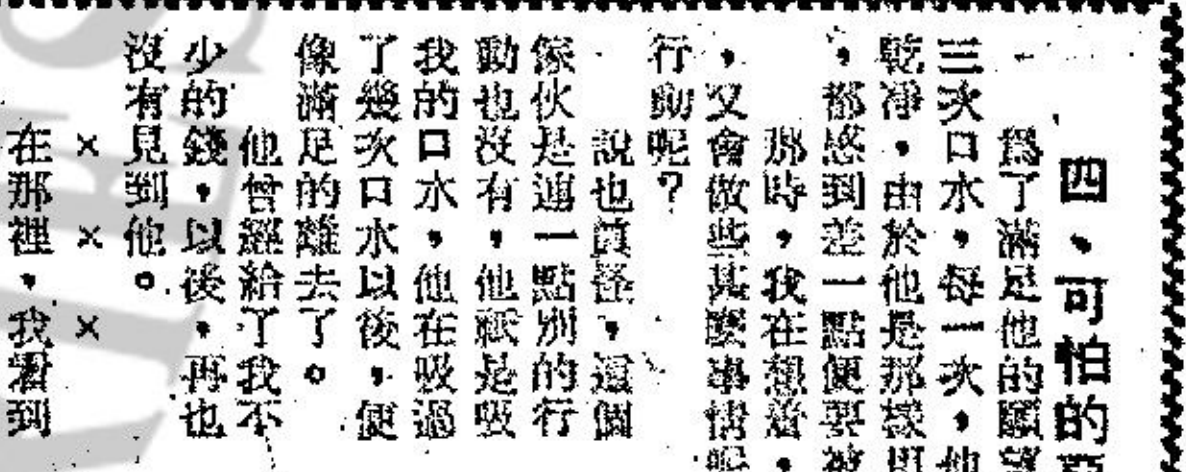 四、可怕的
爲了滿足他的願望
三次口水，每一次，他
乾淨，由於他是那樣用
，都感到差一點便要被
那時，我在想着，
，又會做些甚麼事情呢
行動呢？
說也眞怪，這個
傢伙是連一點別的行
動也沒有，他祇是吸
我的口水，他在吸過
了幾次口水以後，便
像滿足的離去了。
他曾經給了我不
少的錢，以後，再也
沒有見到他。
×××
在那裡，我看到